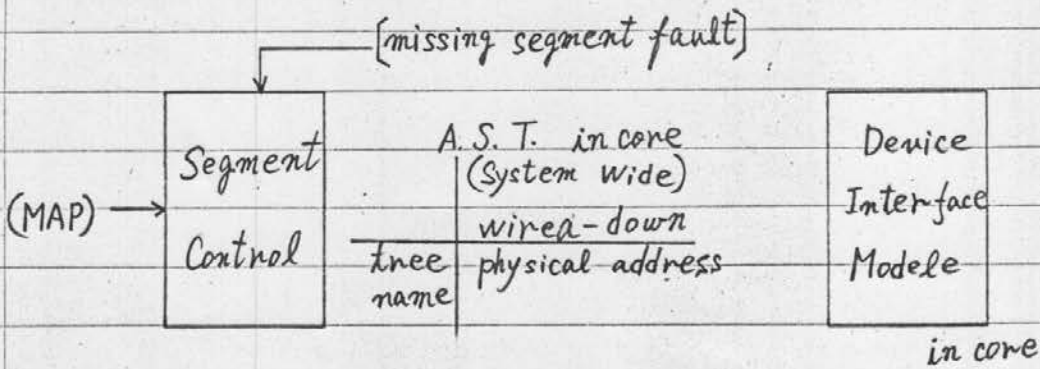 [missing segment fault]
(MAP)
Segment
Control
A. S. T. in core
(System Wide)
wirea-down
tree
name
physical address
Device
Interface
Modele
in core